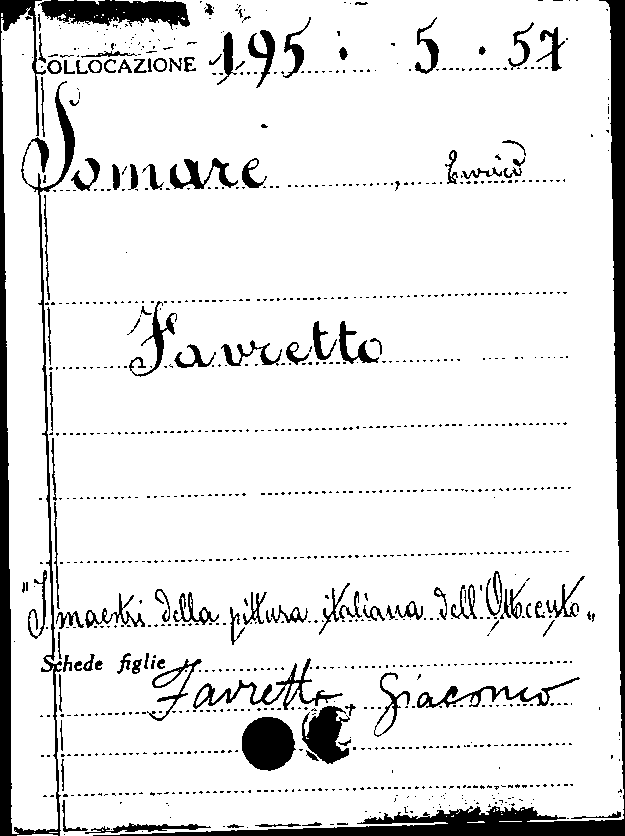 COLLOCAZIONE 195 . 5 . 57
Somarè , Enrico
Favretto
"I maestri della pittura italiana dell'Ottocento"
Schede figlie Favretto Giacomo